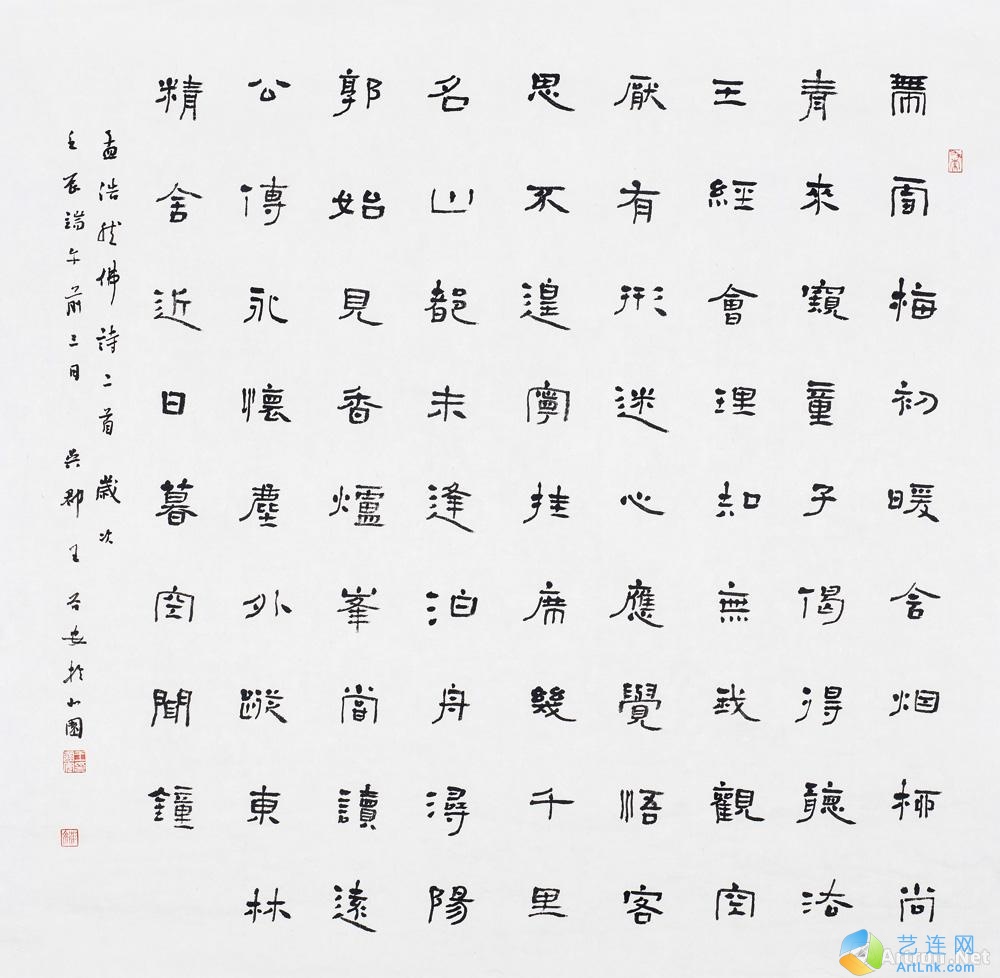 帶雪梅初暖含烟柳尚
青來窺童子偈得聽法
王經會理知無我觀空
厭有形迷心應覺悟客
思不遑寧挂席幾千里
名山都未逢泊舟潯陽
郭始見香爐峯嘗讀遠
公傳永懷塵外蹤東林
精舍近日暮空聞鐘
孟浩然佛詩二首 歲次
壬辰端午前三日 吳郡王安於小園
艺连网
ArtLnk.com
Artron.Net